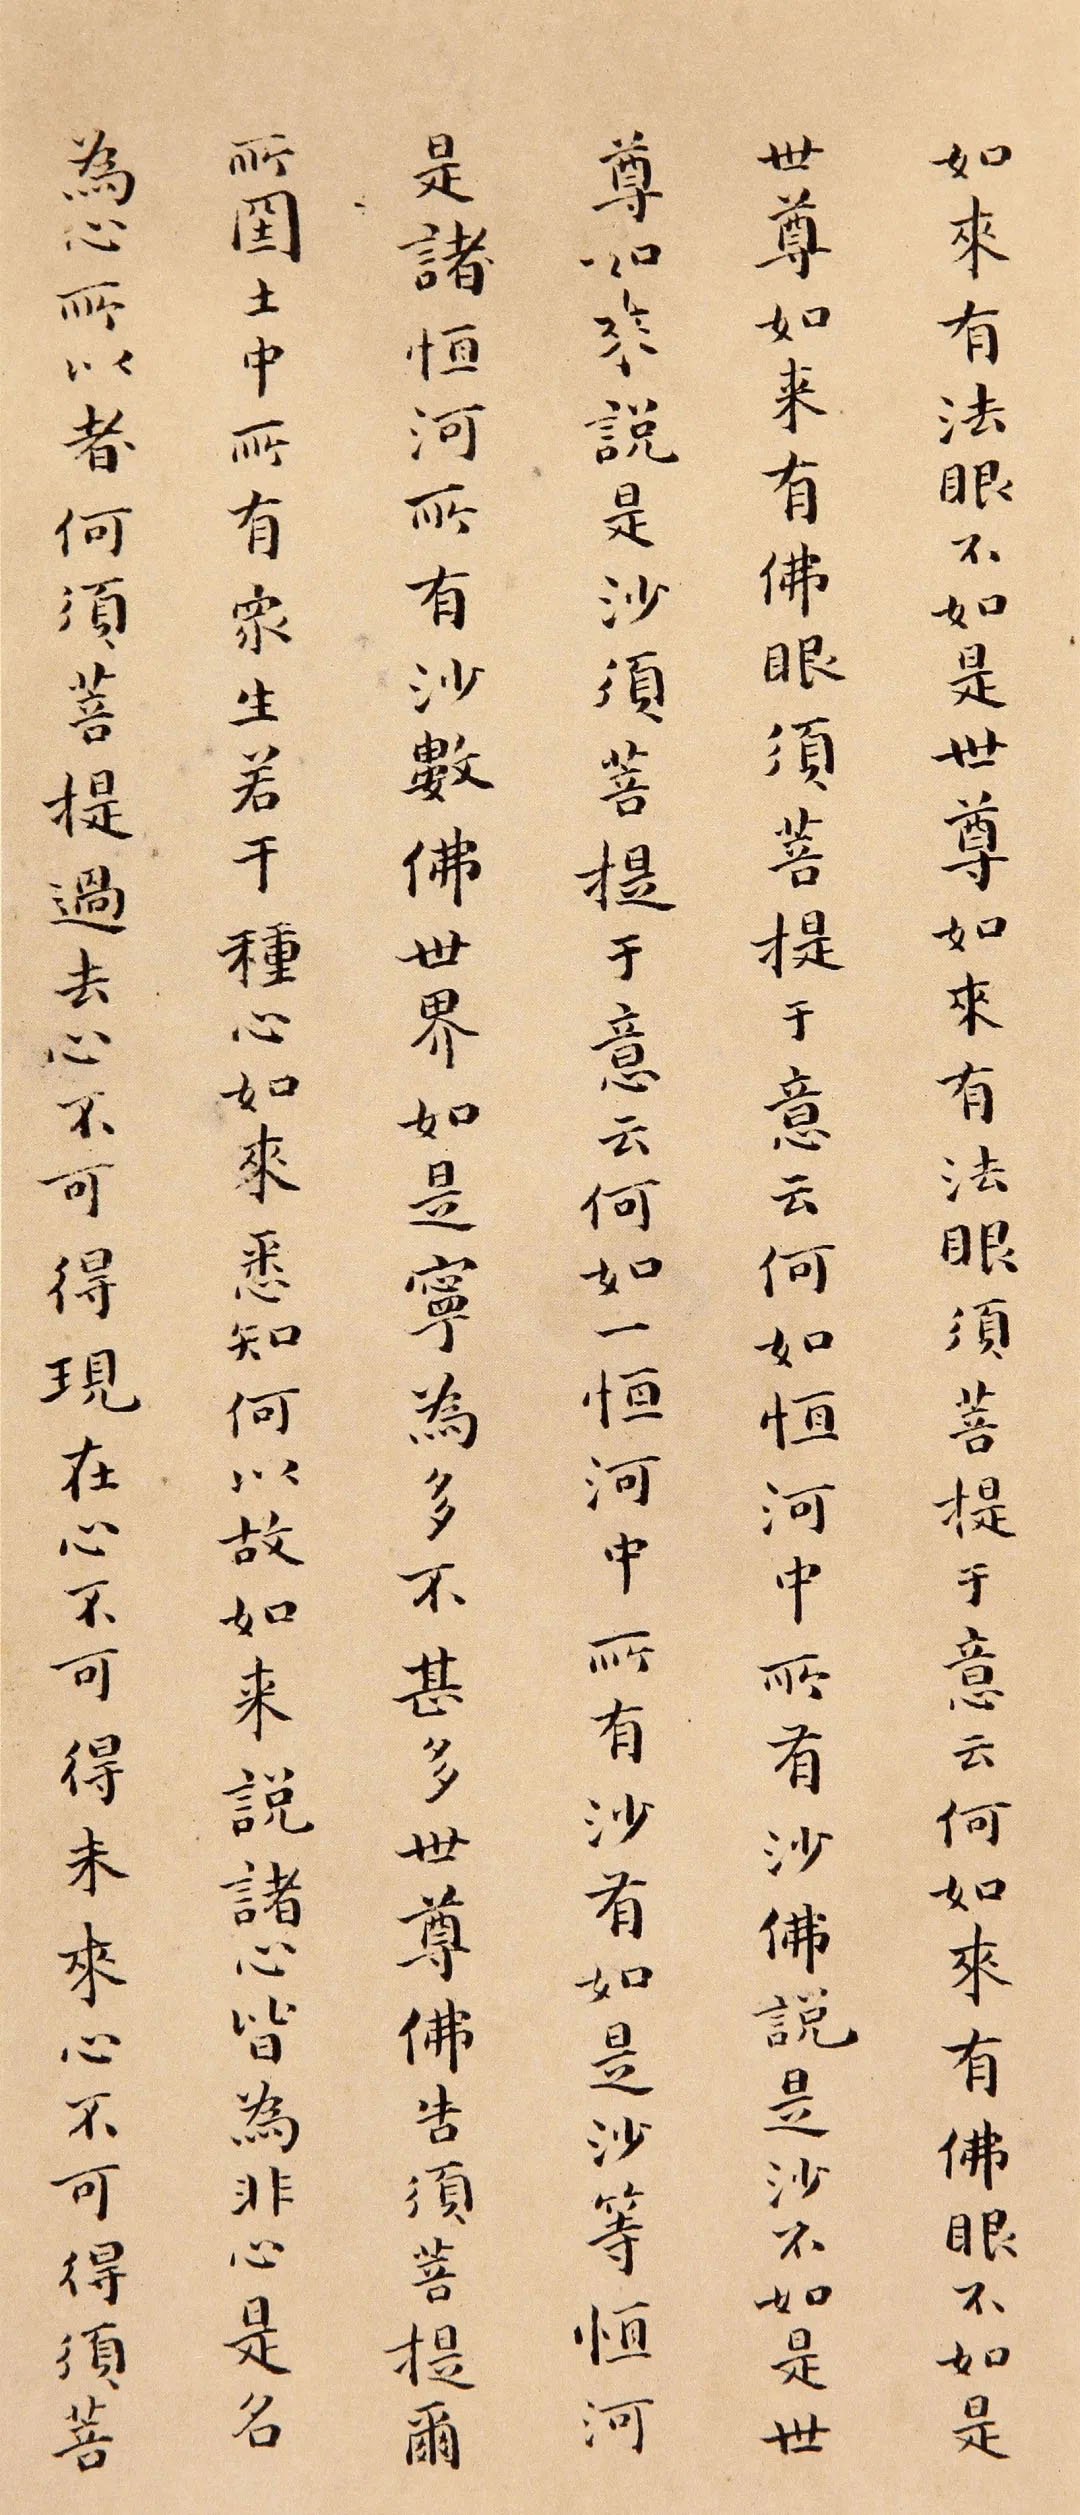 如來有法眼不如是世尊如來有法眼須菩提于意云何如來有佛眼不如是
世尊如来有佛眼須菩提于意云何如恒河中所有沙佛説是沙不如是世
尊如來説是沙須菩提于意云何如一恒河中所有沙有如是沙等恒河
是諸恒河所有沙數佛世界如是寧為多不甚多世尊佛告須菩提爾
所国土中所有眾生若干種心如來悉知何以故如来説諸心皆為非心是名
為心所以者何須菩提過去心不可得現在心不可得未來心不可得須菩